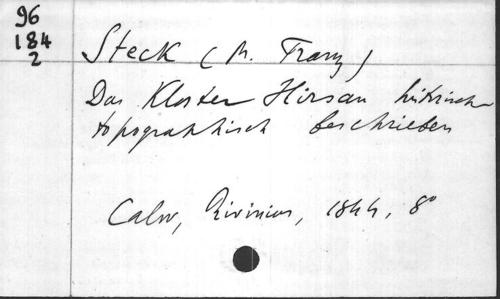 96
184
2
Steck (M. Franz)
Das Kloster Hirsau historisch
topographisch beschrieben
Calw, Rivinius, 1844, 8°